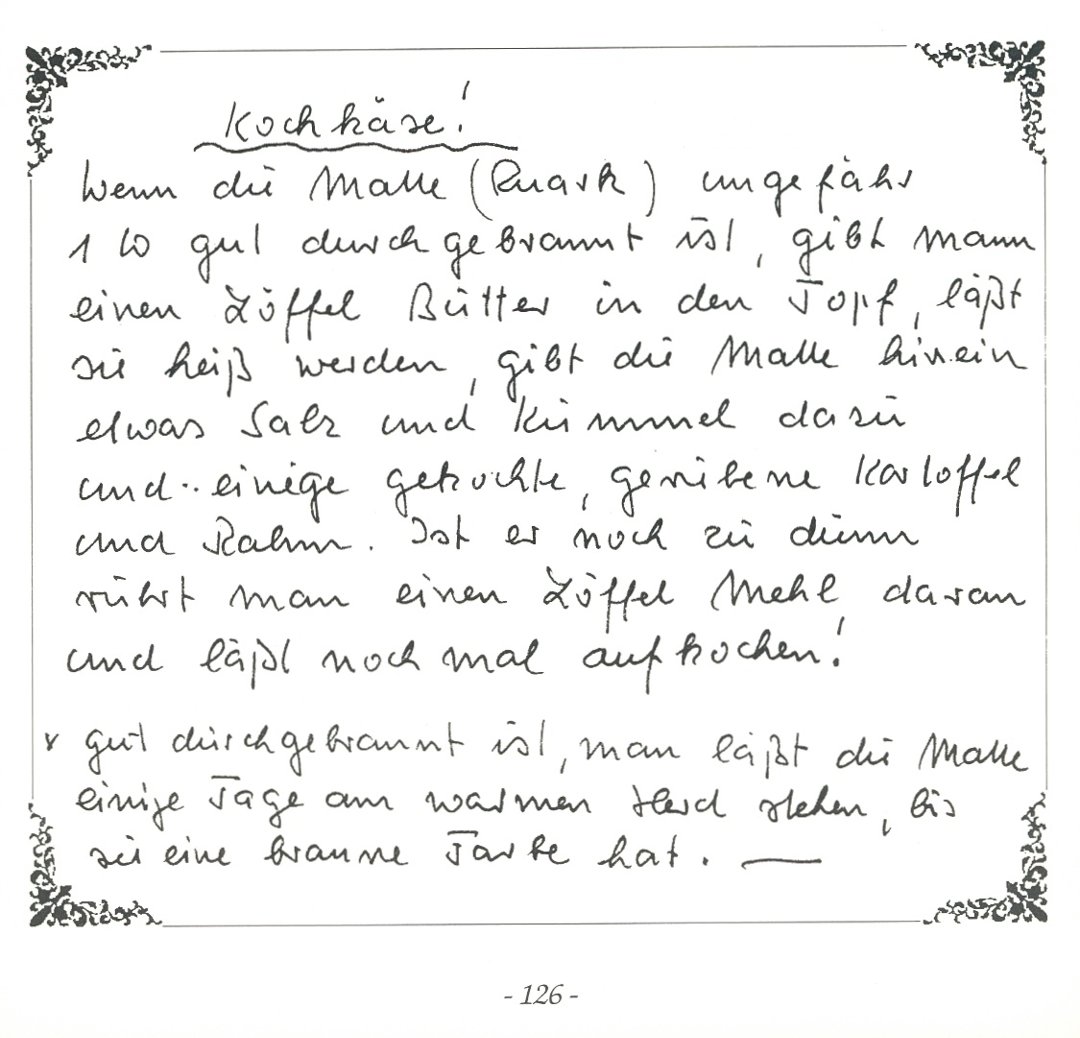 Kochkäse!
Wenn die Matte (Quark) ungefähr
1 lb gut durchgebrannt ist, gibt mann
einen Löffel Butter in den Topf, läßt
sie heiß werden, gibt die Matte hinein
etwas Salz und Kümmel dazu
und einige gekochte, geriebene Kartoffel
und Rahm. Ist er noch zu dünn
rührt man einen Löffel Mehl daran
und läßt noch mal aufkochen!
x gut durchgebrannt ist, man läßt die Matte
einige Tage am warmen Herd stehen, bis
sie eine braune Farbe hat. —
- 126 -